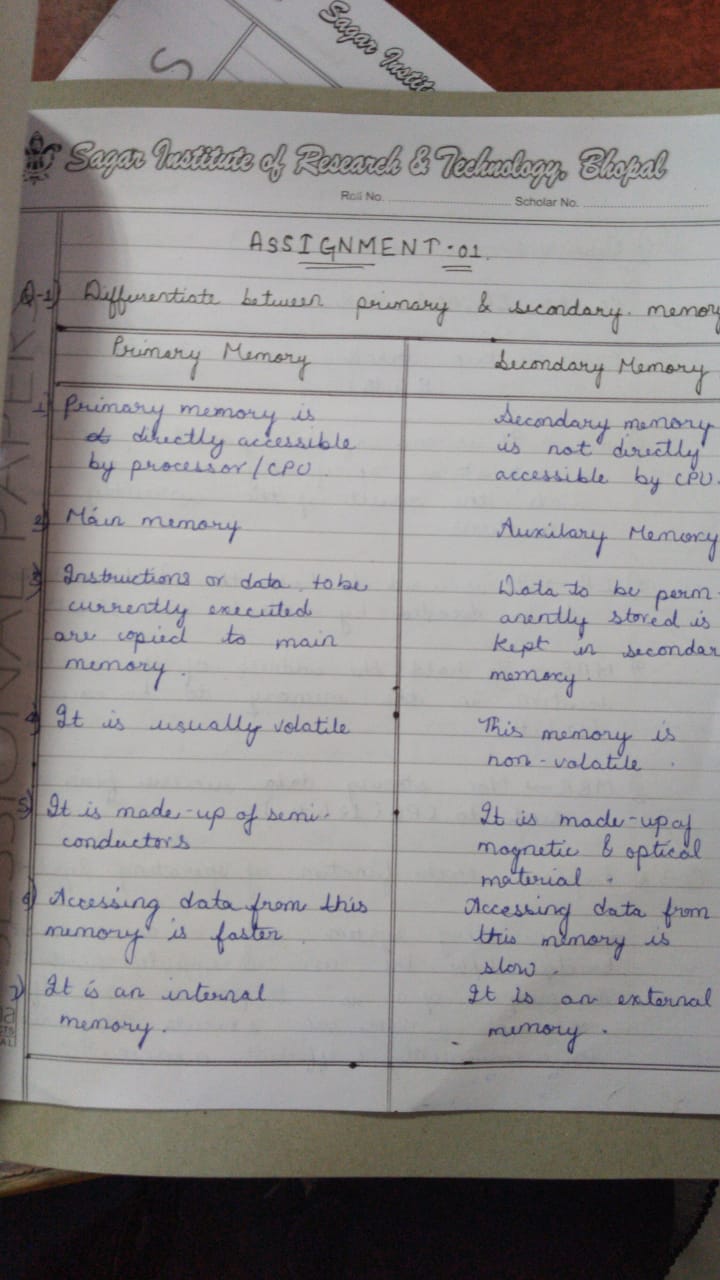 Sagar Instit
S
Sagar Institute of Research & Technology, Bhopal
Roll No. Scholar No.
ASSIGNMENT-01.
Q-1) Differentiate between primary & secondary memory
Primary Memory
Secondary Memory
1) Primary memory is
directly accessible
by processor/CPU
Secondary memory
is not directly
accessible by CPU.
2) Main memory
Auxilary Memory
3) Instructions or data to be
currently executed
are copied to main
memory.
Data to be perm-
anently stored is
kept in secondar
memory
4) It is usually volatile
This memory is
non-volatile.
5) It is made-up of semi-
conductors
It is made-up of
magnetic & optical
material.
6) Accessing data from this
memory is faster.
Accessing data from
this memory is
slow.
7) It is an internal
memory.
It is an external
memory.
SESSIONAL PAPER